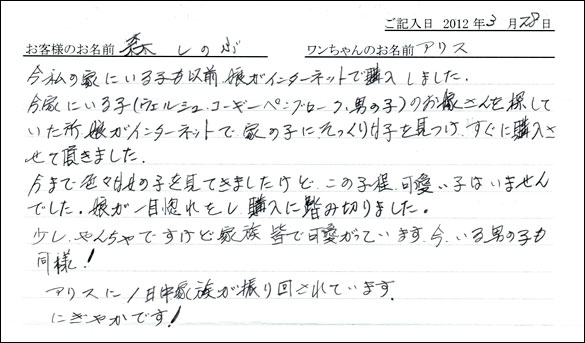 ご記入日 2012年3月28日
お客様のお名前 森 しのぶ ワンちゃんのお名前 アリス
今私の家にいる子も以前、娘がインターネットで購入しました。
今家にいる子(ウェルシュ・コーギーペンブローク、男の子)のお嫁さんを探して
いた所、娘がインターネットで家の子にそっくりな子を見つけ、すぐに購入さ
せて頂きました。
今まで色々な女の子を見てきましたけど、この子程、可愛い子はいません
でした。娘が一目惚れをし購入に踏み切りました。
少し、やんちゃですけど家族皆で可愛がっています。今、いる男の子も
同様!
アリスに1日中家族が振り回されています。
にぎやかです!